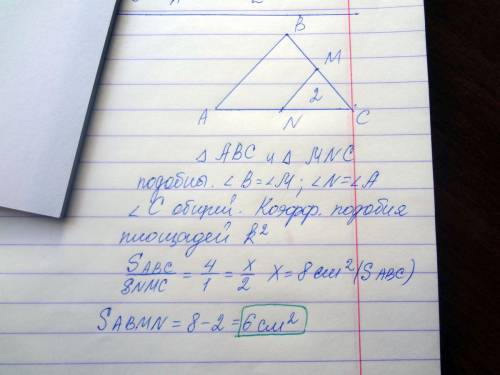 B
M
2
A
N
C
△ ABC и △ MNC
подобны. ∠B=∠M; ∠N=∠A
∠C общий. Коэфф. подобия
площадей k²
SABC/SNMC = 4/1 = x/2 X = 8 см² (SABC)
SABMN = 8-2 = 6 см²